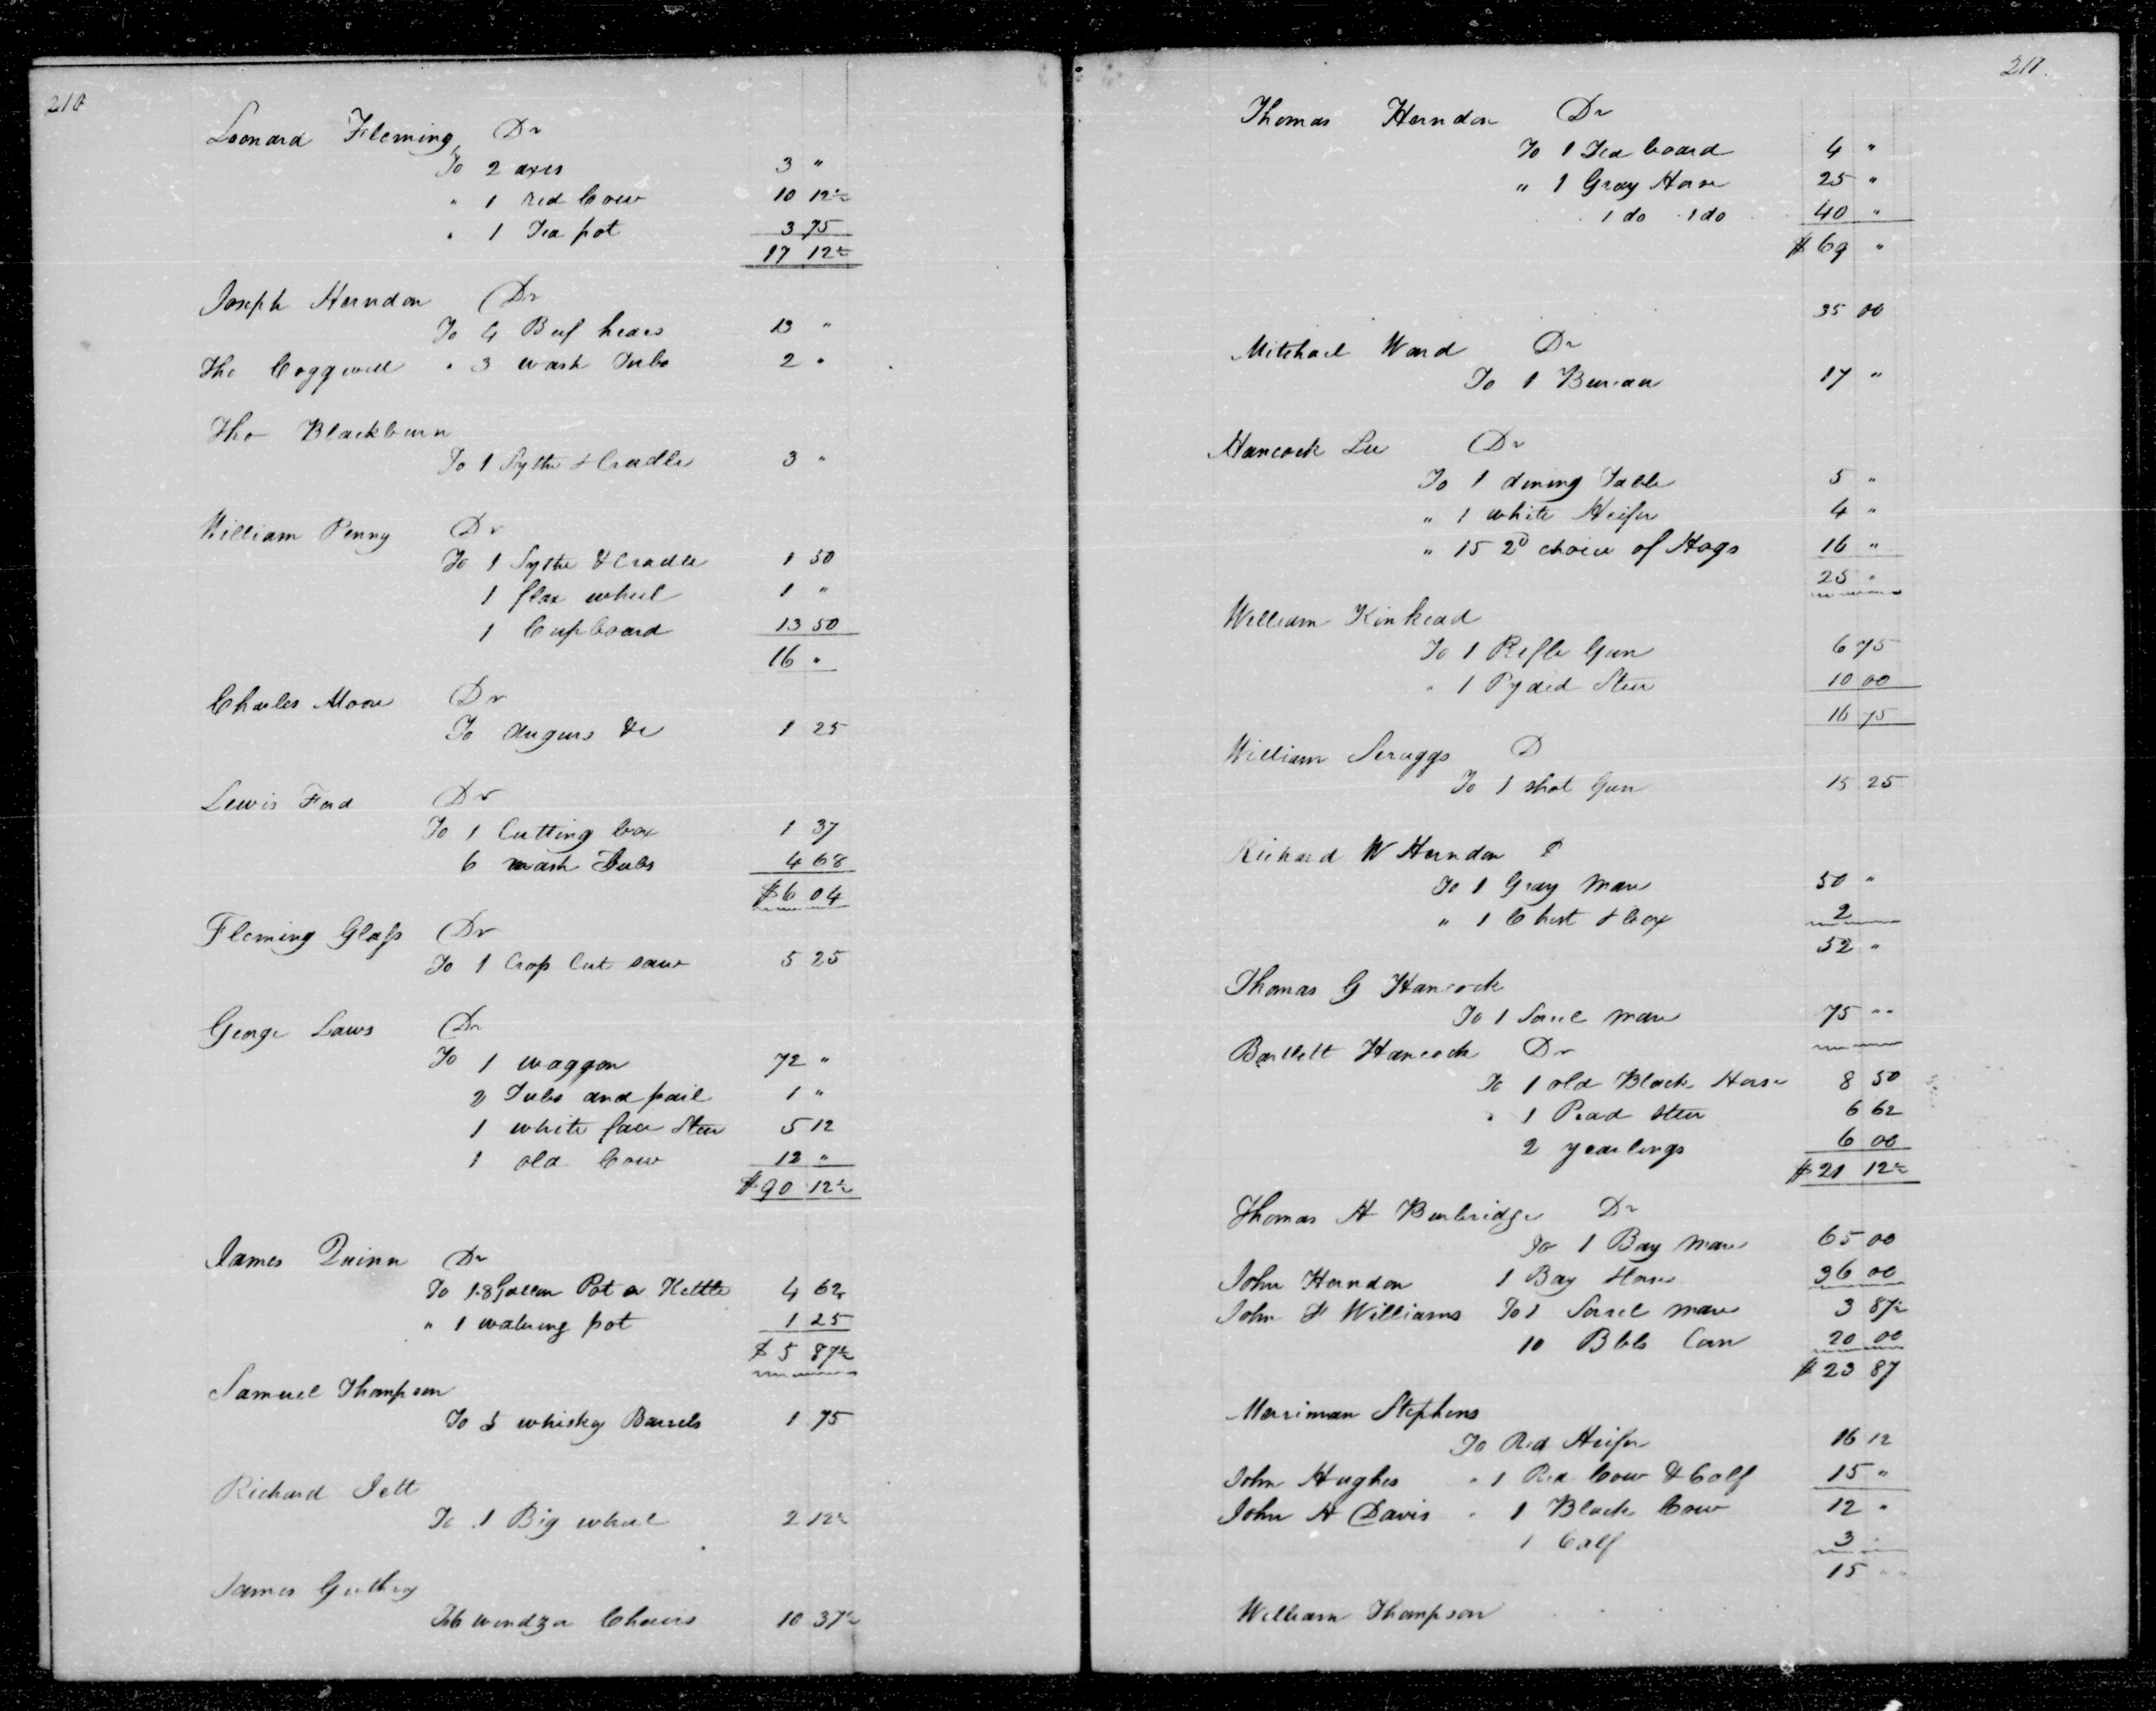 210
Leonard Fleming Dr
To 2 axes 3 "
" 1 red Cow 10 12½
" 1 Tea pot 3 75
17 12½
Joseph Herndon Dr
To 4 Beef heads 13 "
Tho Coggwell " 3 wash Tubs 2 "
Tho Blackburn
To 1 Sythe & Cradle 3 "
William Penny Dr
To 1 Sythe & Cradle 1 50
1 flax wheel 1 "
1 Cupboard 13 50
16 "
Charles Moore Dr
To Augurs &c 1 25
Lewis Ford Dr
To 1 Cutting box 1 37
6 mash Tubs 4 68
$6 04
Fleming Glass Dr
To 1 Crop Cut saw 5 25
George Laws Dr
To 1 waggon 72 "
2 Tubs and pail 1 "
1 white face Steer 5 12
1 old Cow 12 "
$90 12½
James Quinn Dr
To 1.8 Gallon Pot or Kettle 4 62
" 1 watering pot 1 25
$5 87½
Samuel Thompson
To 5 whisky Barrels 1 75
Richard Jett
To 1 Big wheel 2 12½
James Guthrey
To 6 windzor Chairs 10 37½
211.
Thomas Herndon Dr
To 1 Tea board 4 "
" 1 Gray Horse 25 "
1 do 1 do 40 "
$69 "
35 00
Mitchael Ward Dr
To 1 Bureau 17 "
Hancock Lee Dr
To 1 dining Table 5 "
" 1 white Heifer 4 "
" 15 2d choice of Hogs 16 "
25 "
William Kinkead
To 1 Rifle Gun 6 75
" 1 Pyded Steer 10 00
16 75
William Scruggs D
To 1 shot Gun 15 25
Richard W Herndon D
To 1 Gray Mare 50 "
" 1 Chest & box 2
52 "
Thomas G Hancock
To 1 Sorrel mare 75 "
Bartlett Hancock Dr
To 1 old Black Horse 8 50
" 1 steer 6 62
2 yearlings 6 00
$21 12½
Thomas H Burbridge Dr
To 1 Bay Mare 65 00
John Herndon 1 Bay Horse 36 00
John F Williams To 1 Sorrel mare 3 87½
10 Bbls Corn 20 00
$23 87
Merriman Stephens
To Red Heifer 16 12
John Hughes " 1 Red Cow & Calf 15 "
John H Davis " 1 Black Cow 12 "
1 Calf 3 "
15 "
William Thompson